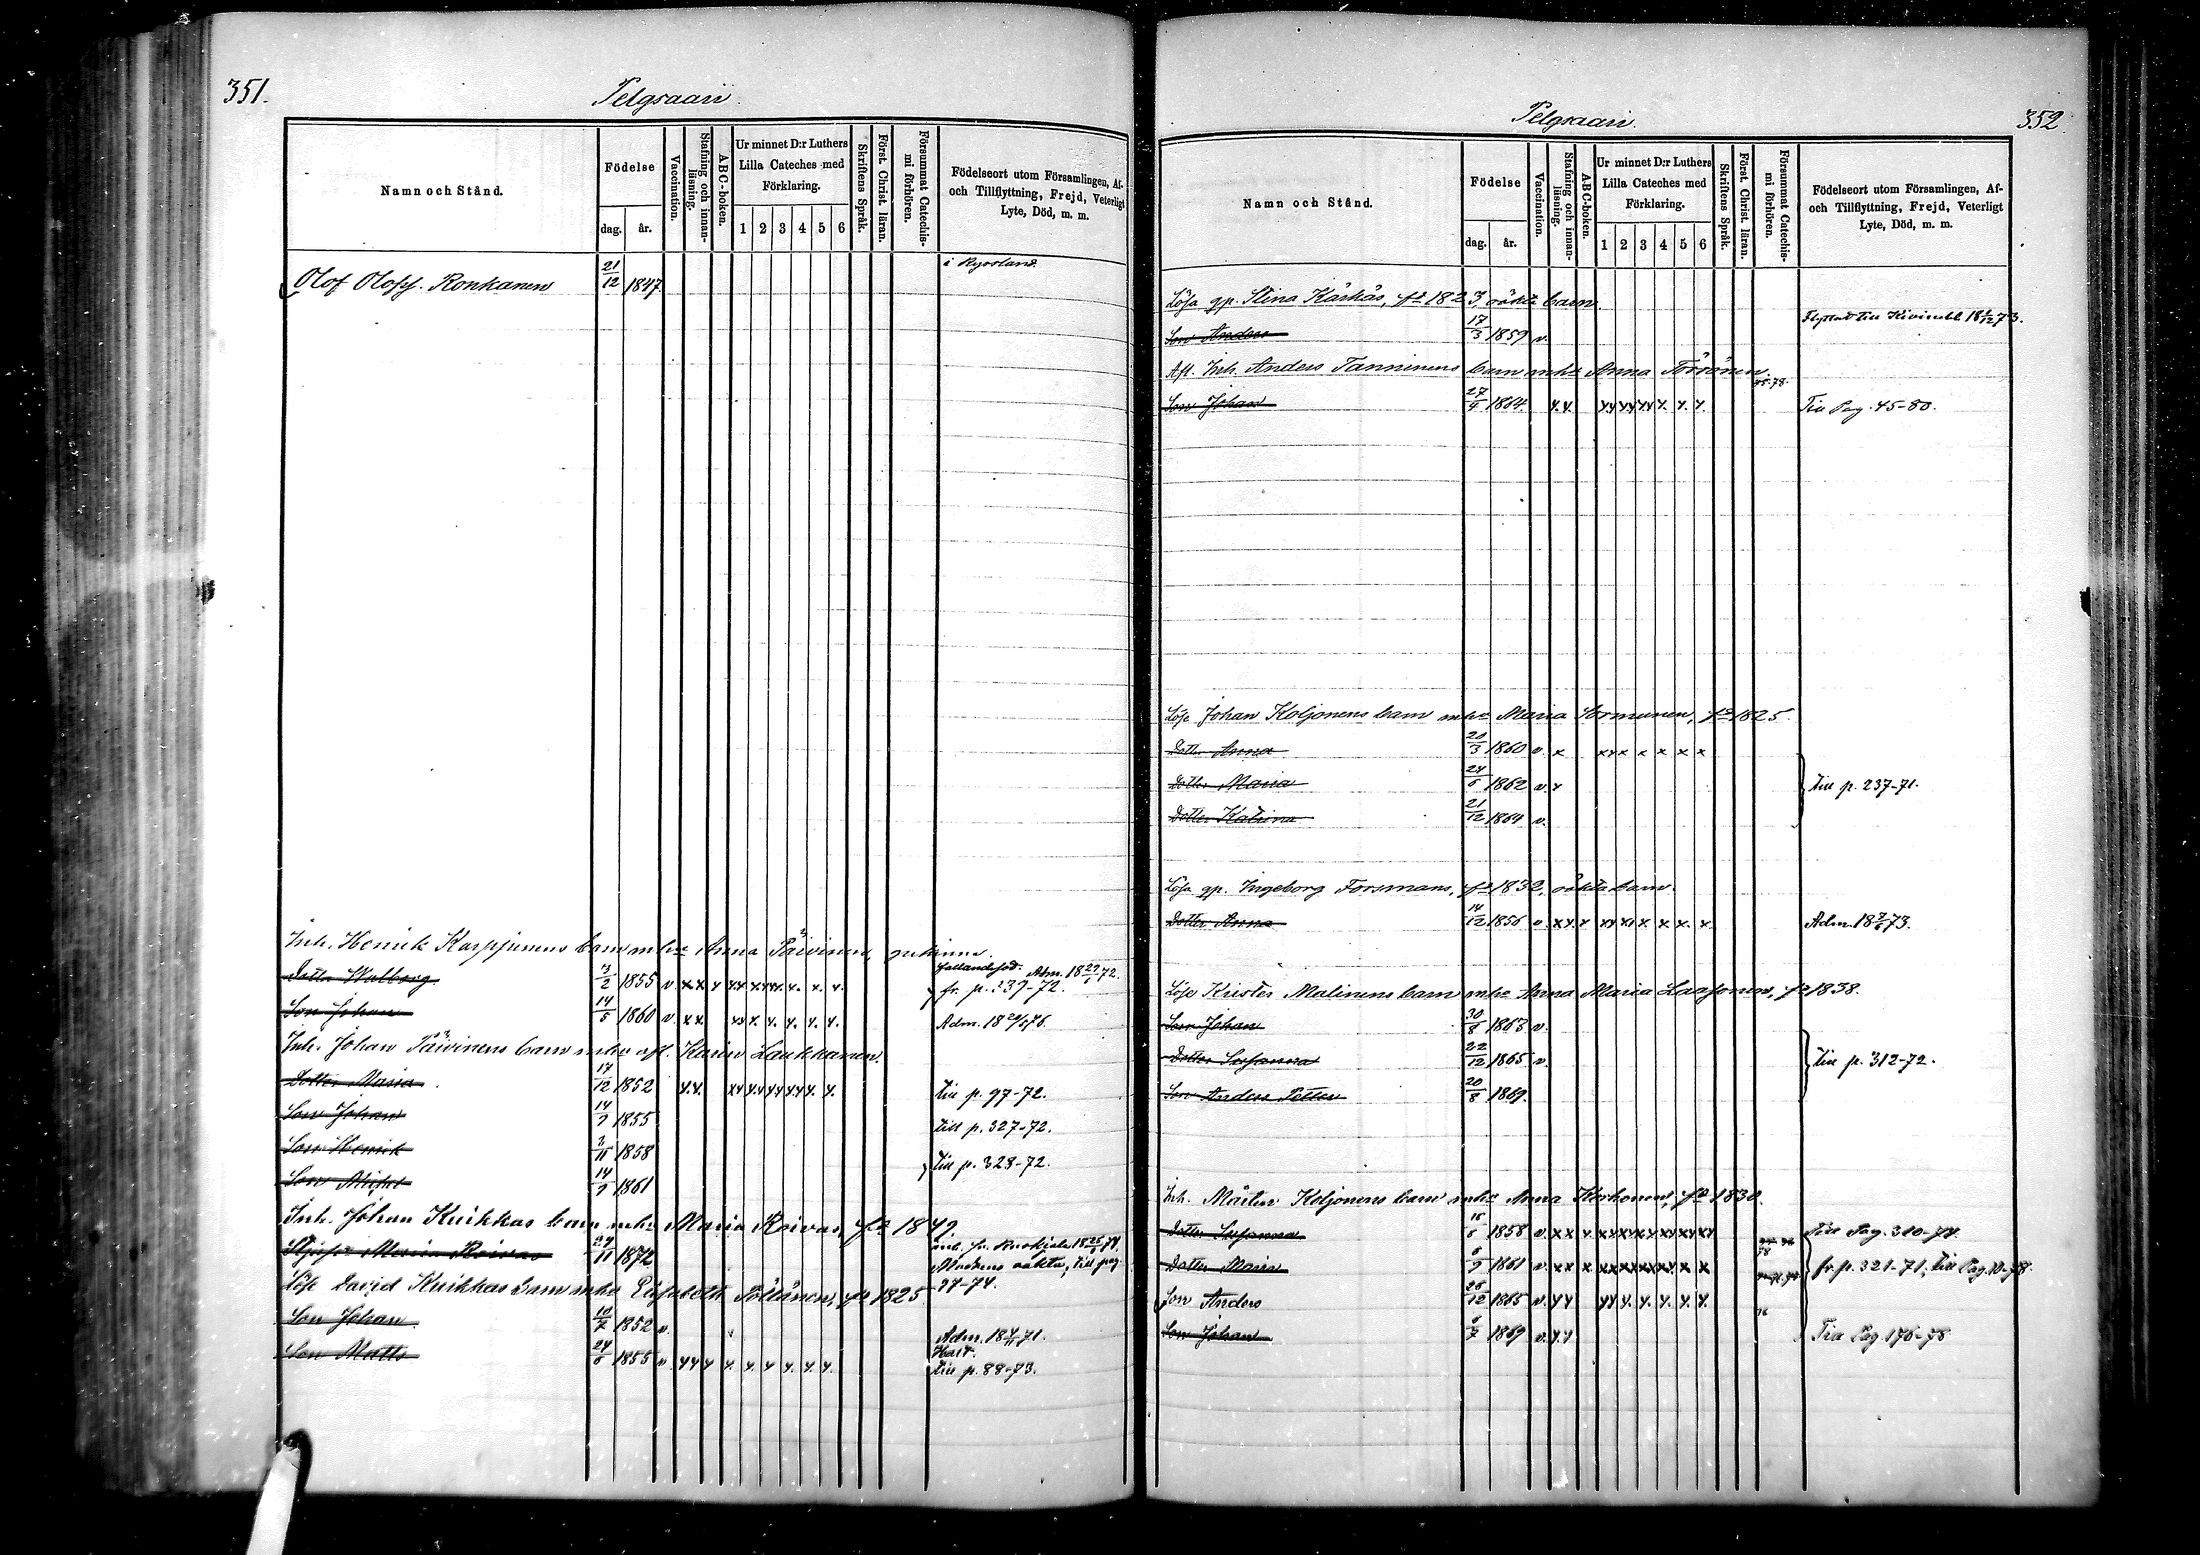 351.
Pelgsaari.
Namn och Stånd.
Födelse
dag.
år.
Vaccination.
Stafning och innan-
läsning.
ABC-boken.
Ur minnet D:r Luthers
Lilla Cateches med
Förklaring.
1 2 3 4 5 6
Skriftens Språk.
Först. Christ. läran.
Försummat Catechis-
mi förhören.
Födelseort utom Församlingen, Af-
och Tillflyttning, Frejd, Veterligt
Lyte, Död, m. m.
i Ryssland.
Olof Olofss. Ronkanen 21/12 1847
Inh. Henrik Karppinens barn mhu Anna Päivinen,
Dotter Walborg 3/2 1855 v x x x x x x x x x. x. x. fr. p. 239-72. Adm. 18 29/6 72.
Son Johan 14/5 1860 v x x. x x x. x. x. x. x. Adm. 18 29/5 76.
Inh. Johan Päivinens barn mhu afl. Karin Laukkanen.
Dotter Maria 17/12 1852 x. x. x x x. x x x x x x. x. till p. 97-72.
Son Johan 14/9 1855 till p. 327-72.
Son Henrik 2/11 1858
Son Michel 14/9 1861 till p. 328-72.
Inh. Johan Kuikkas barn mhu Maria Koivas, fd 1849.
Maria Koivas 29/11 1872 till pag.
97-74.
Löse David Kuikkas barn mhu Elisabeth Pöllänen, fd 1825
Son Johan 10/7 1852 v. Adm. 18 4/11 71.
Son Matts 24/6 1855 v x x x x. x. x x. x. x. till p. 88-73.
Pelgsaari.
352.
Namn och Stånd.
Födelse
dag.
år.
Vaccination.
Stafning och innan-
läsning.
ABC-boken.
Ur minnet D:r Luthers
Lilla Cateches med
Förklaring.
1 2 3 4 5 6
Skriftens Språk.
Först. Christ. läran.
Försummat Catechis-
mi förhören.
Födelseort utom Församlingen, Af-
och Tillflyttning, Frejd, Veterligt
Lyte, Död, m. m.
Lösa qp. Stina Kärkäs, fd 1823, oäkta barn.
Son Anders 17/3 1859 v. till Kivinebb
Afl. Inh. Anders Tanninens barn mhu Anna Törrönen.
Son Johan 27/4 1864 x. x. x x x x x x x. x. x. 78. Till Pag. 45-80.
Löse Johan Koljonens barn mhu Maria Sormunen, fd 1825
Dotter Anna 20/3 1860 v. x x x x x x x x
Dotter Maria 24/6 1862 v. x till p. 237-71.
Dotter Katrina 21/12 1864 v.
Lösa qp. Ingeborg Forsmans, fd 1832, oäkta barn.
Dotter Anna 14/12 1856 v x x. x x x x x x x. x. Adm. 18 7/6 73.
Löse Krister Malinens barn mhu Anna Maria Laasonen, fd 1838.
Son Johan 30/8 1863 v.
Dotter Susanna 22/12 1865 v. till p. 312-72.
Son Anders Petter 20/8 1869.
Inh. Mårten Koljonens barn mhu Anna Korhonen, fd 1830.
Dotter Susanna 16/6 1858 v. x x x. x x x x x x x x x x Till Pag. 310-74.
Dotter Maria 6/9 1861 v. x x x x x x x x x x x 78 fr p. 321-71; Till Pag. 10-78.
Son Anders 26/12 1865 v. x x x x x. x. x. x. x.
Son Johan 6/7 1869 v. x. x 76 Till Pag. 176-78